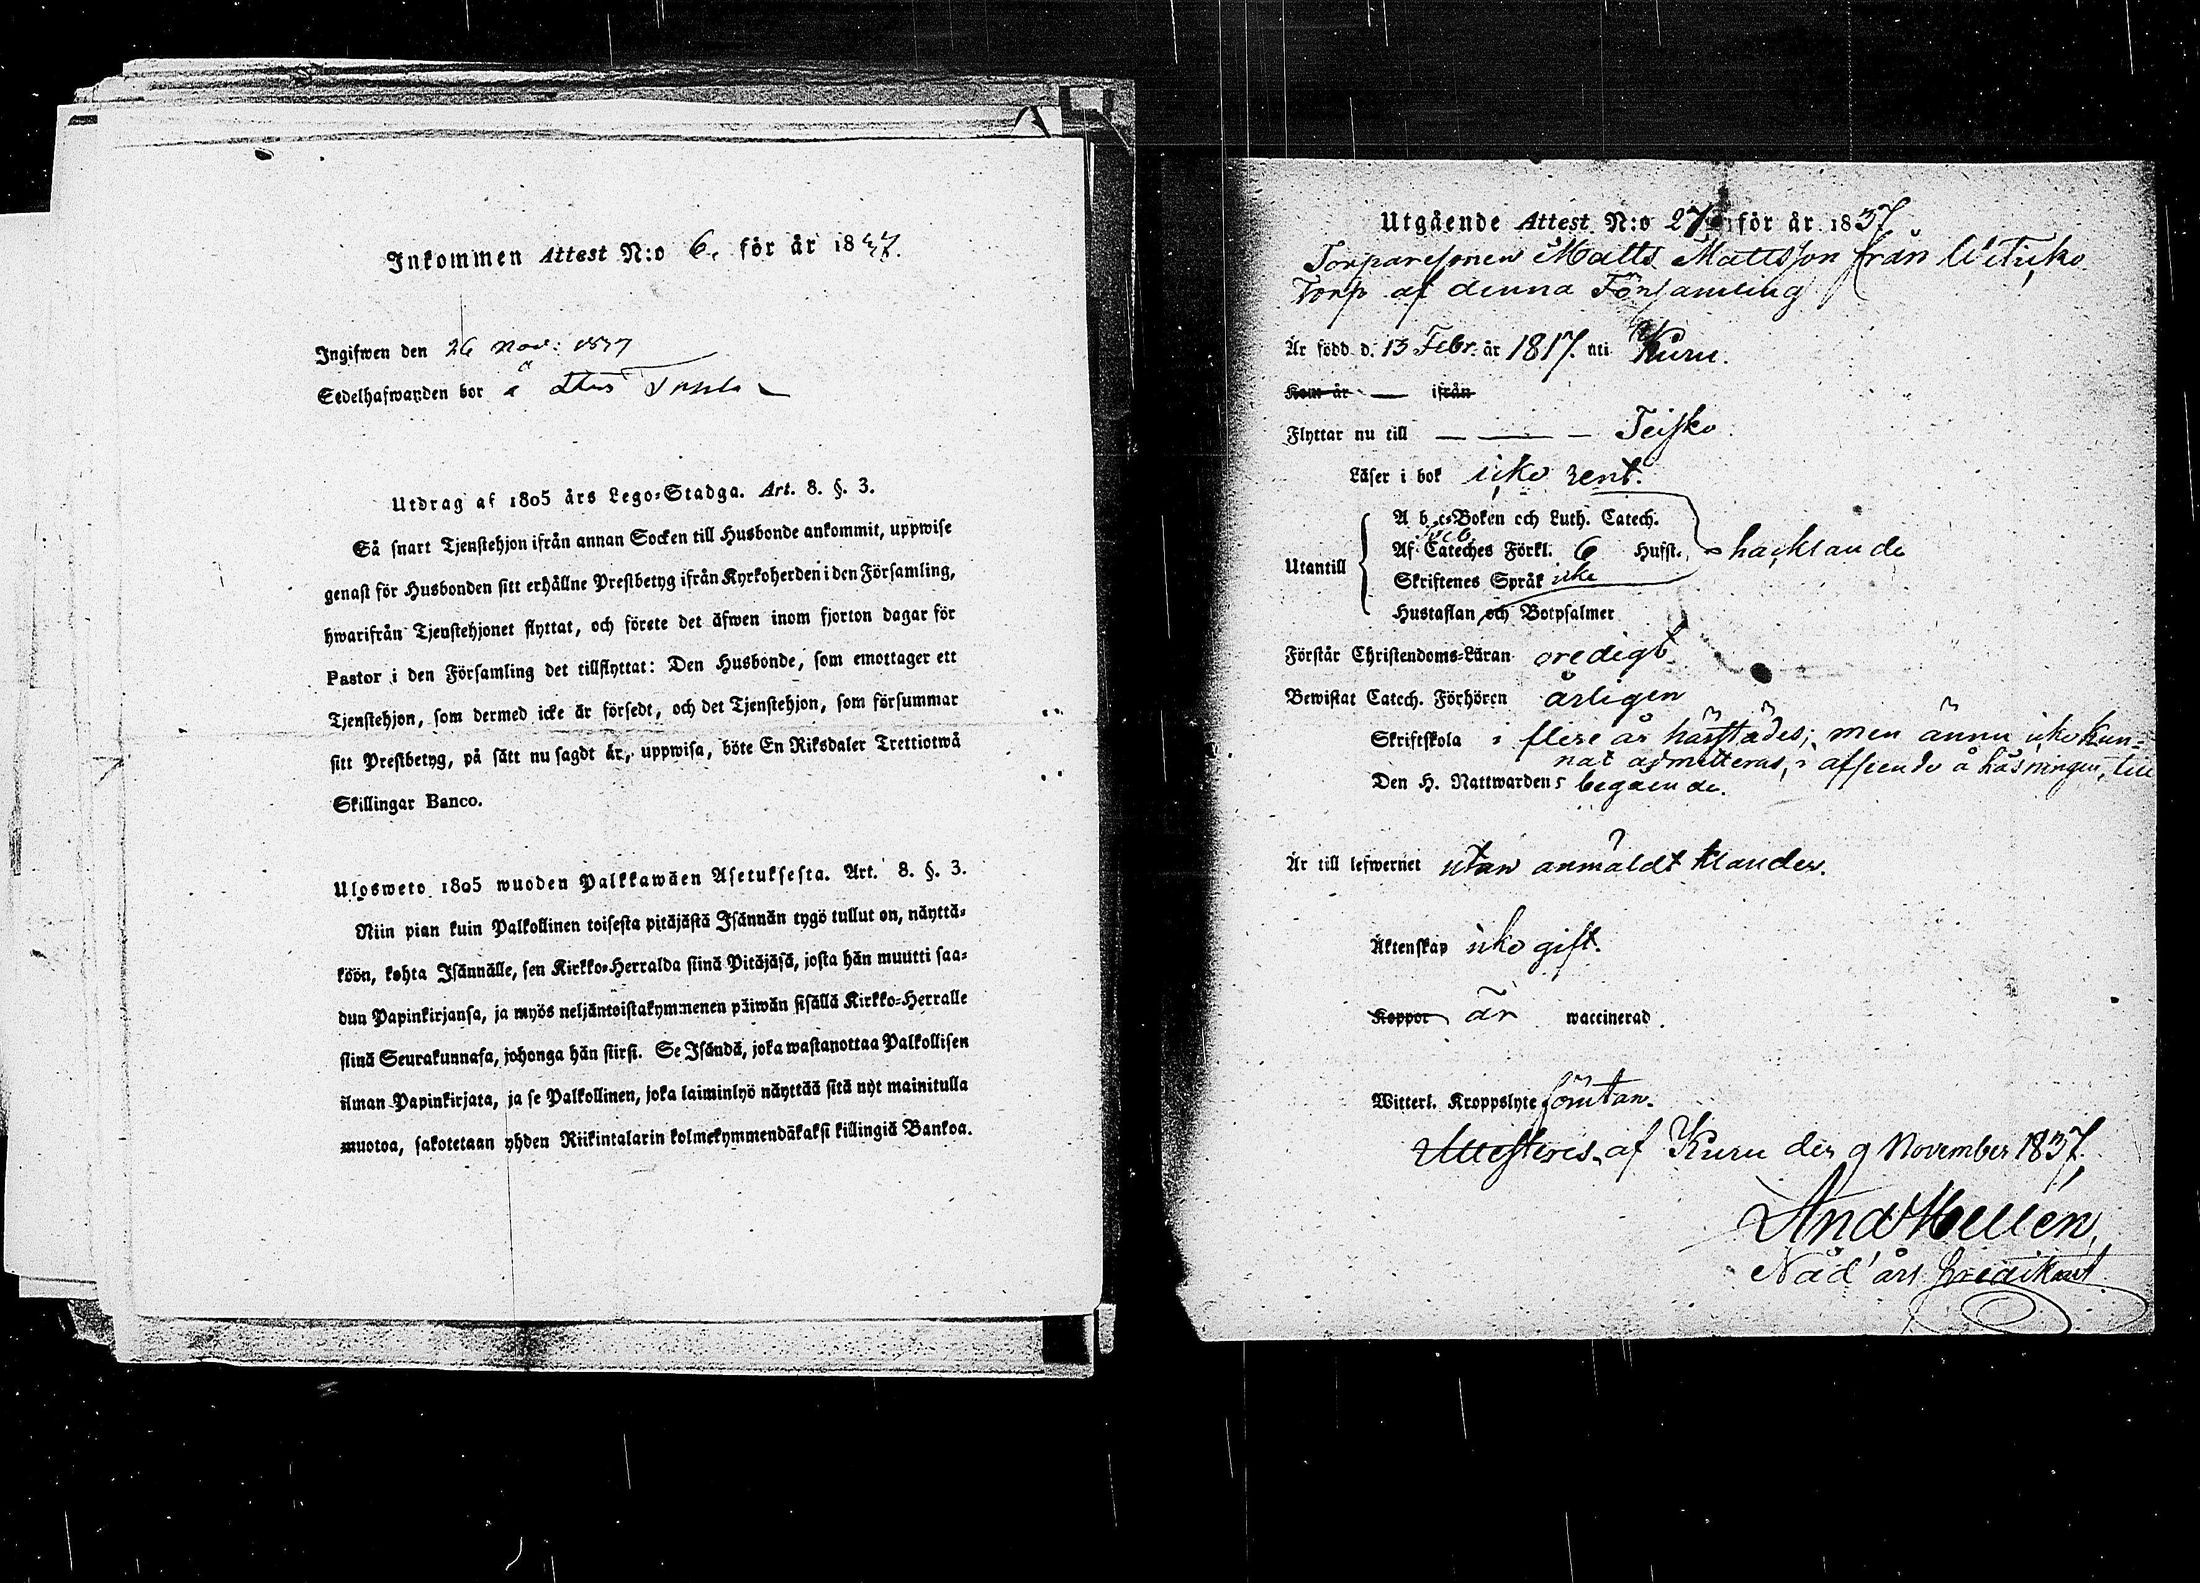 Inkommen Attest N:o 6. för år 1837.
Ingifwen den 26 Nov: 1837
Sedelhafwanden bor å
Utdrag af 1805 års Lego-Stadga. Art. 8. §. 3.
Så snart Tjenstehjon ifrån annan Socken till Husbonde ankommit, uppwise
genast för Husbonden sitt erhållne Prestbetyg ifrån Kyrkoherden i den Församling,
hwarifrån Tjenstehjonet flyttat, och förete det äfwen inom fjorton dagar för
Pastor i den Församling det tillflyttat: Den Husbonde, som emottager ett
Tjenstehjon, som dermed icke är försedt, och det Tjenstehjon, som försummar
sitt Prestbetyg, på sätt nu sagdt är, uppwisa, böte En Riksdaler Trettiotwå
Skillingar Banco.
Ulosweto 1805 wuoden Palkkawäen Asetuksesta. Art. 8. §. 3.
Niin pian kuin Palkollinen toisesta pitäjästä Isännän tygö tullut on, näyttä-
köön, kohta Isännälle, sen Kirkko-Herralda siinä Pitäjäsä, josta hän muutti saa-
dun Papinkirjansa, ja myös neljäntoistakymmenen päiwän sisällä Kirkko-Herralle
siinä Seurakunnasa, johonga hän siirsi. Se Isändä, joka wastanottaa Palkollisen
ilman Papinkirjata, ja se Palkollinen, joka laiminlyö näyttää sitä nyt mainitulla
muotoa, sakotetaan yhden Riikintalarin kolmekymmendäkaksi killingiä Bankoa.
Utgående Attest N:o 27 för år 1837
Torparesonen Matts Mattsson från
Torp af denna Församling
Är född d. 13 Febr. år 1817. uti Kuru.
Kom år — ifrån
Flyttar nu till — — — Teisko.
Läser i bok icke rent.
A b c-Boken och Luth. Catech.
Utantill Af Cateches Förkl. 6 Hufst. hacklande
Skriftenes Språk icke
Hustaflan och Botpsalmer
Förstår Christendoms-Läran oredigt
Bewistat Catech. Förhören årligen
Skriftskola i flere år härstädes; men ännu icke kun-
nat admitteras, i afseende å läsningen, till
Den H. Nattwardens begående.
Är till lefwernet utan anmäldt klander.
Äktenskap icke gift.
Koppor är waccinerad.
Witterl. Kroppslyte förutan.
Attesteres af Kuru den 9 November 1837.
And Hellén,
Nåd' års Predikant.